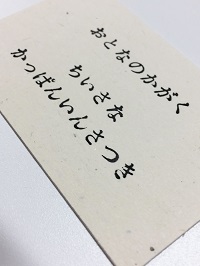 おとなのかがく
ちいさな
かっぱんいんさつき